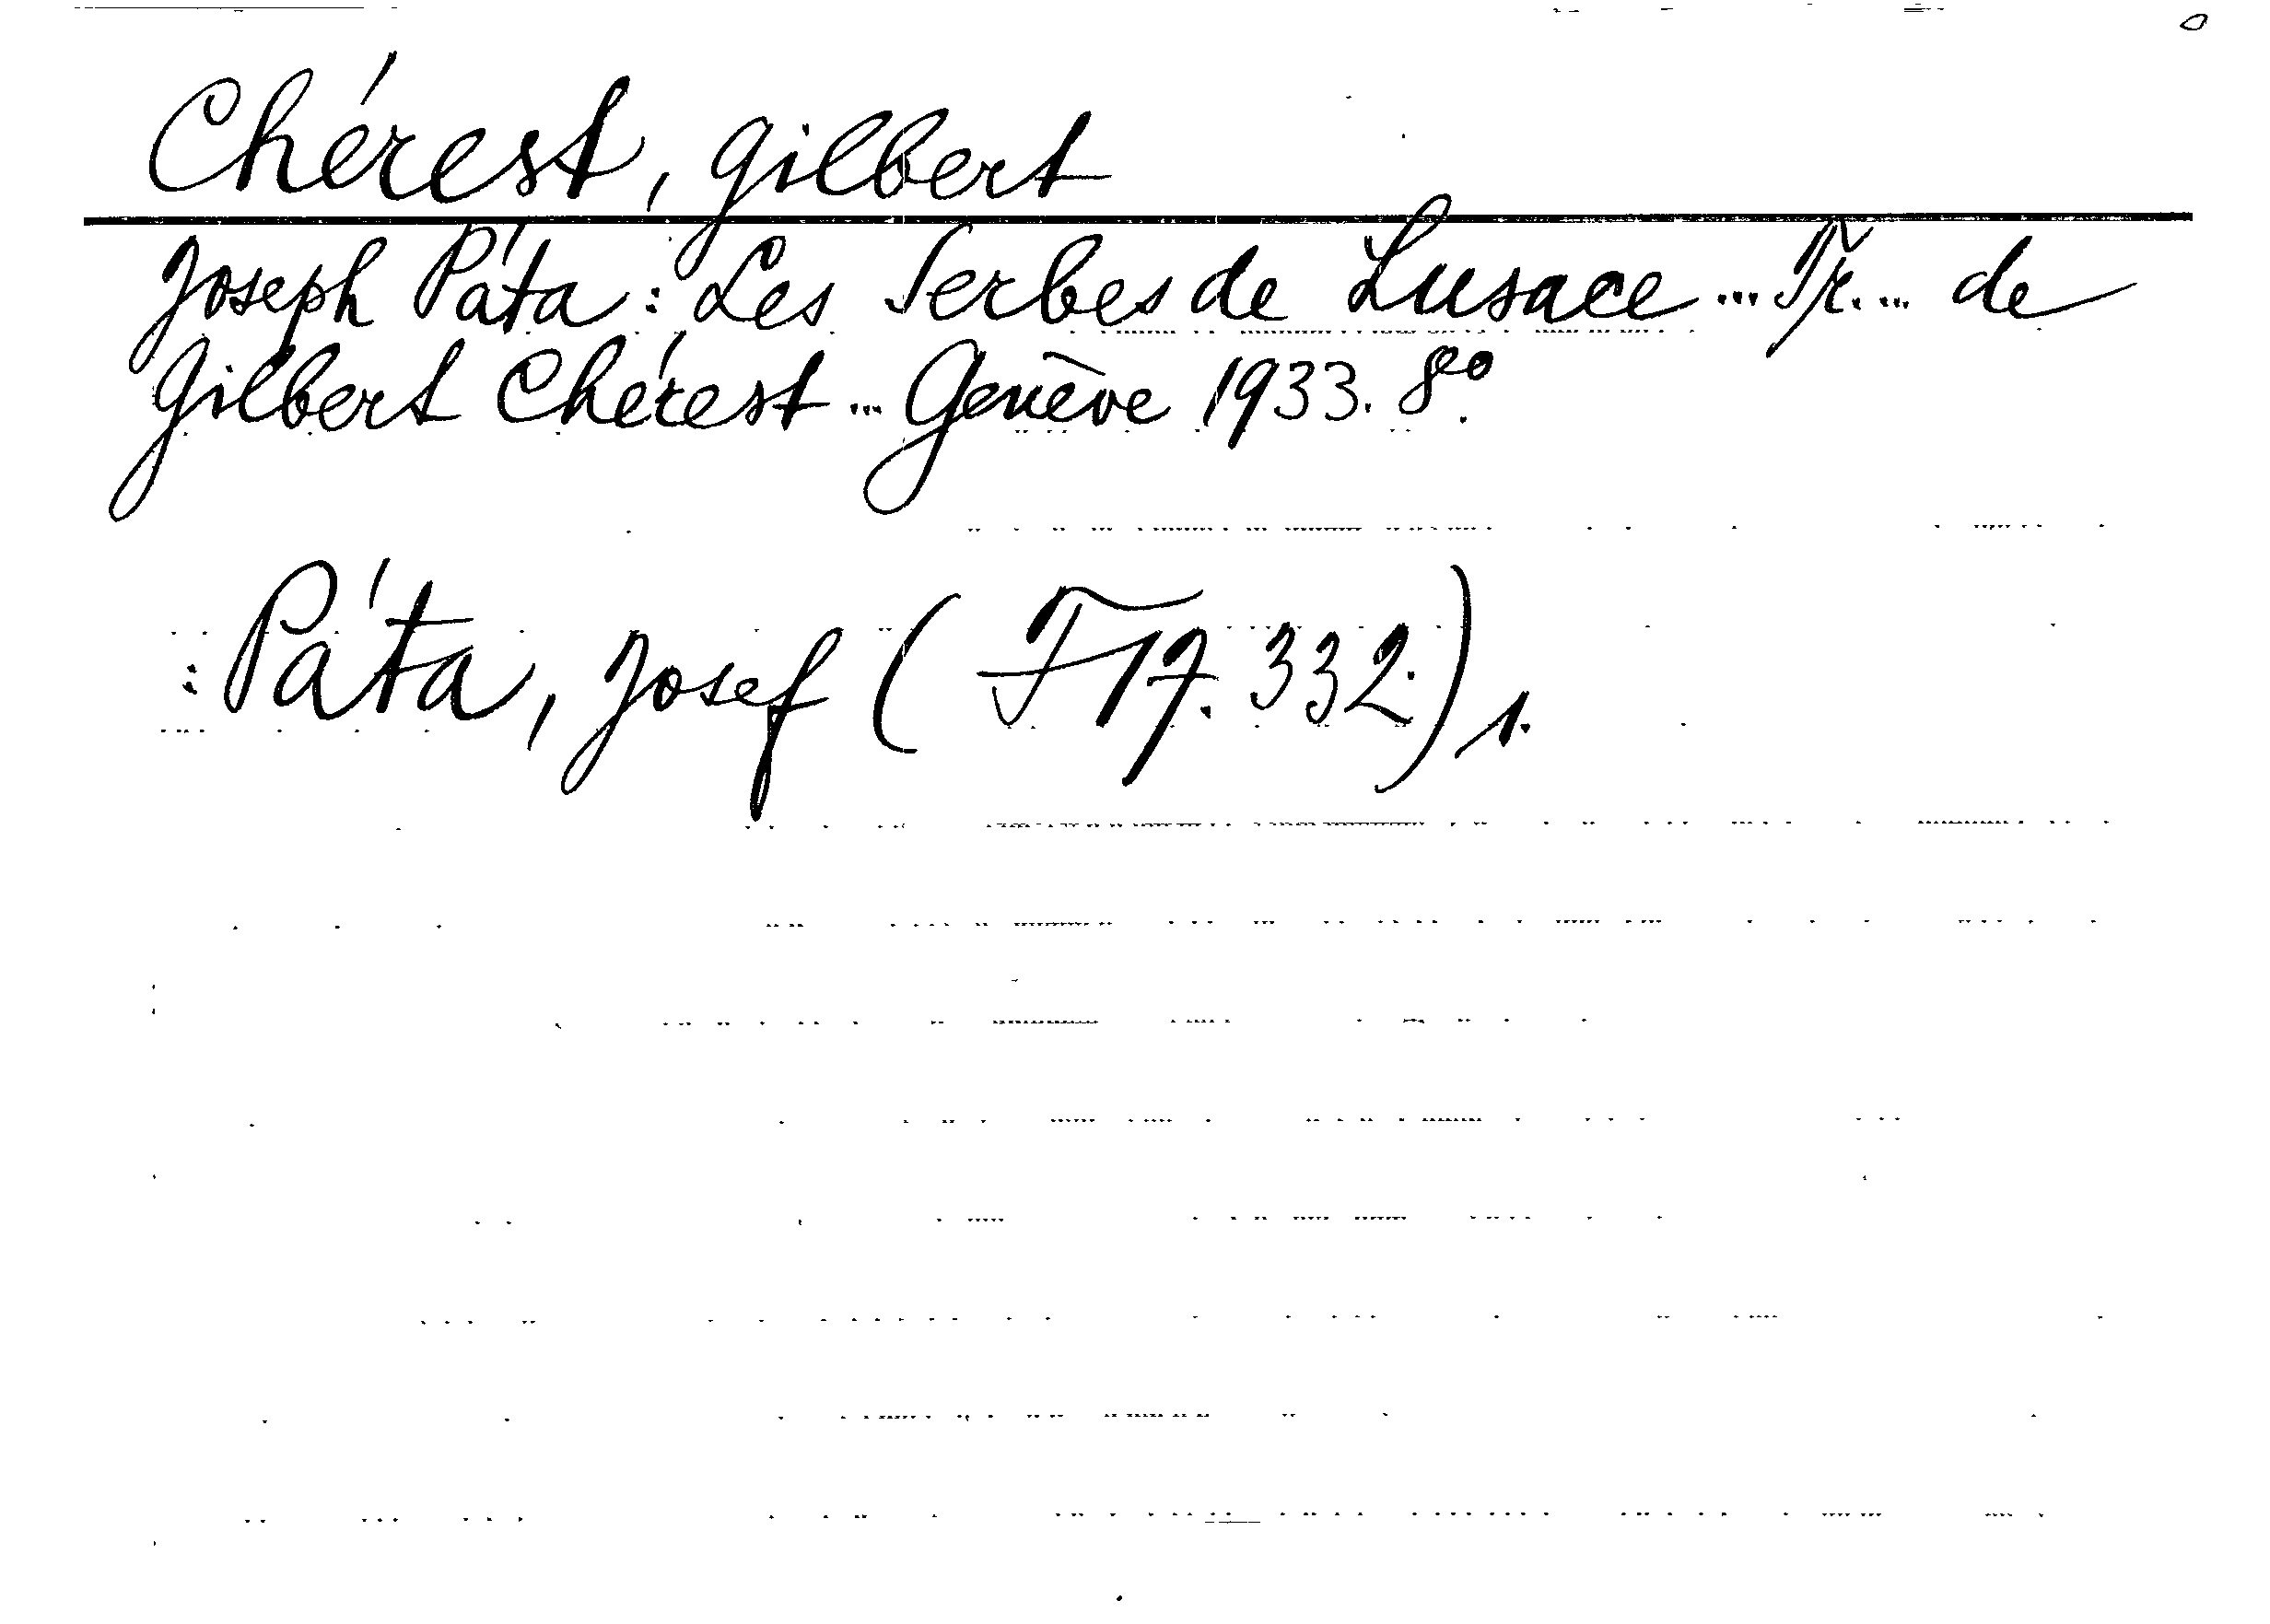 Chérest, Gilbert
Joseph Páta: Les Serbes de Lusace ... Př. ... de
Gilbert Chérest ... Genève 1933. 8°.
: Páta, Josef (F 17.332.) 1.